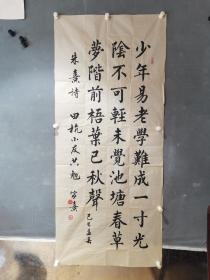 少年易老學難成一寸光
陰不可輕未覺池塘春草
夢階前梧葉已秋聲
朱熹詩 田杭小友共勉